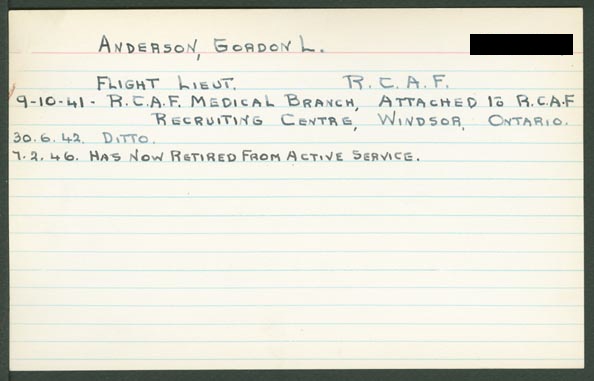 ANDERSON, GORDON L.
FLIGHT LIEUT. R.C.A.F.
9-10-41 - R.C.A.F. MEDICAL BRANCH, ATTACHED TO R.C.A.F
RECRUITING CENTRE, WINDSOR, ONTARIO.
30.6.42. DITTO.
7.2.46. HAS NOW RETIRED FROM ACTIVE SERVICE.